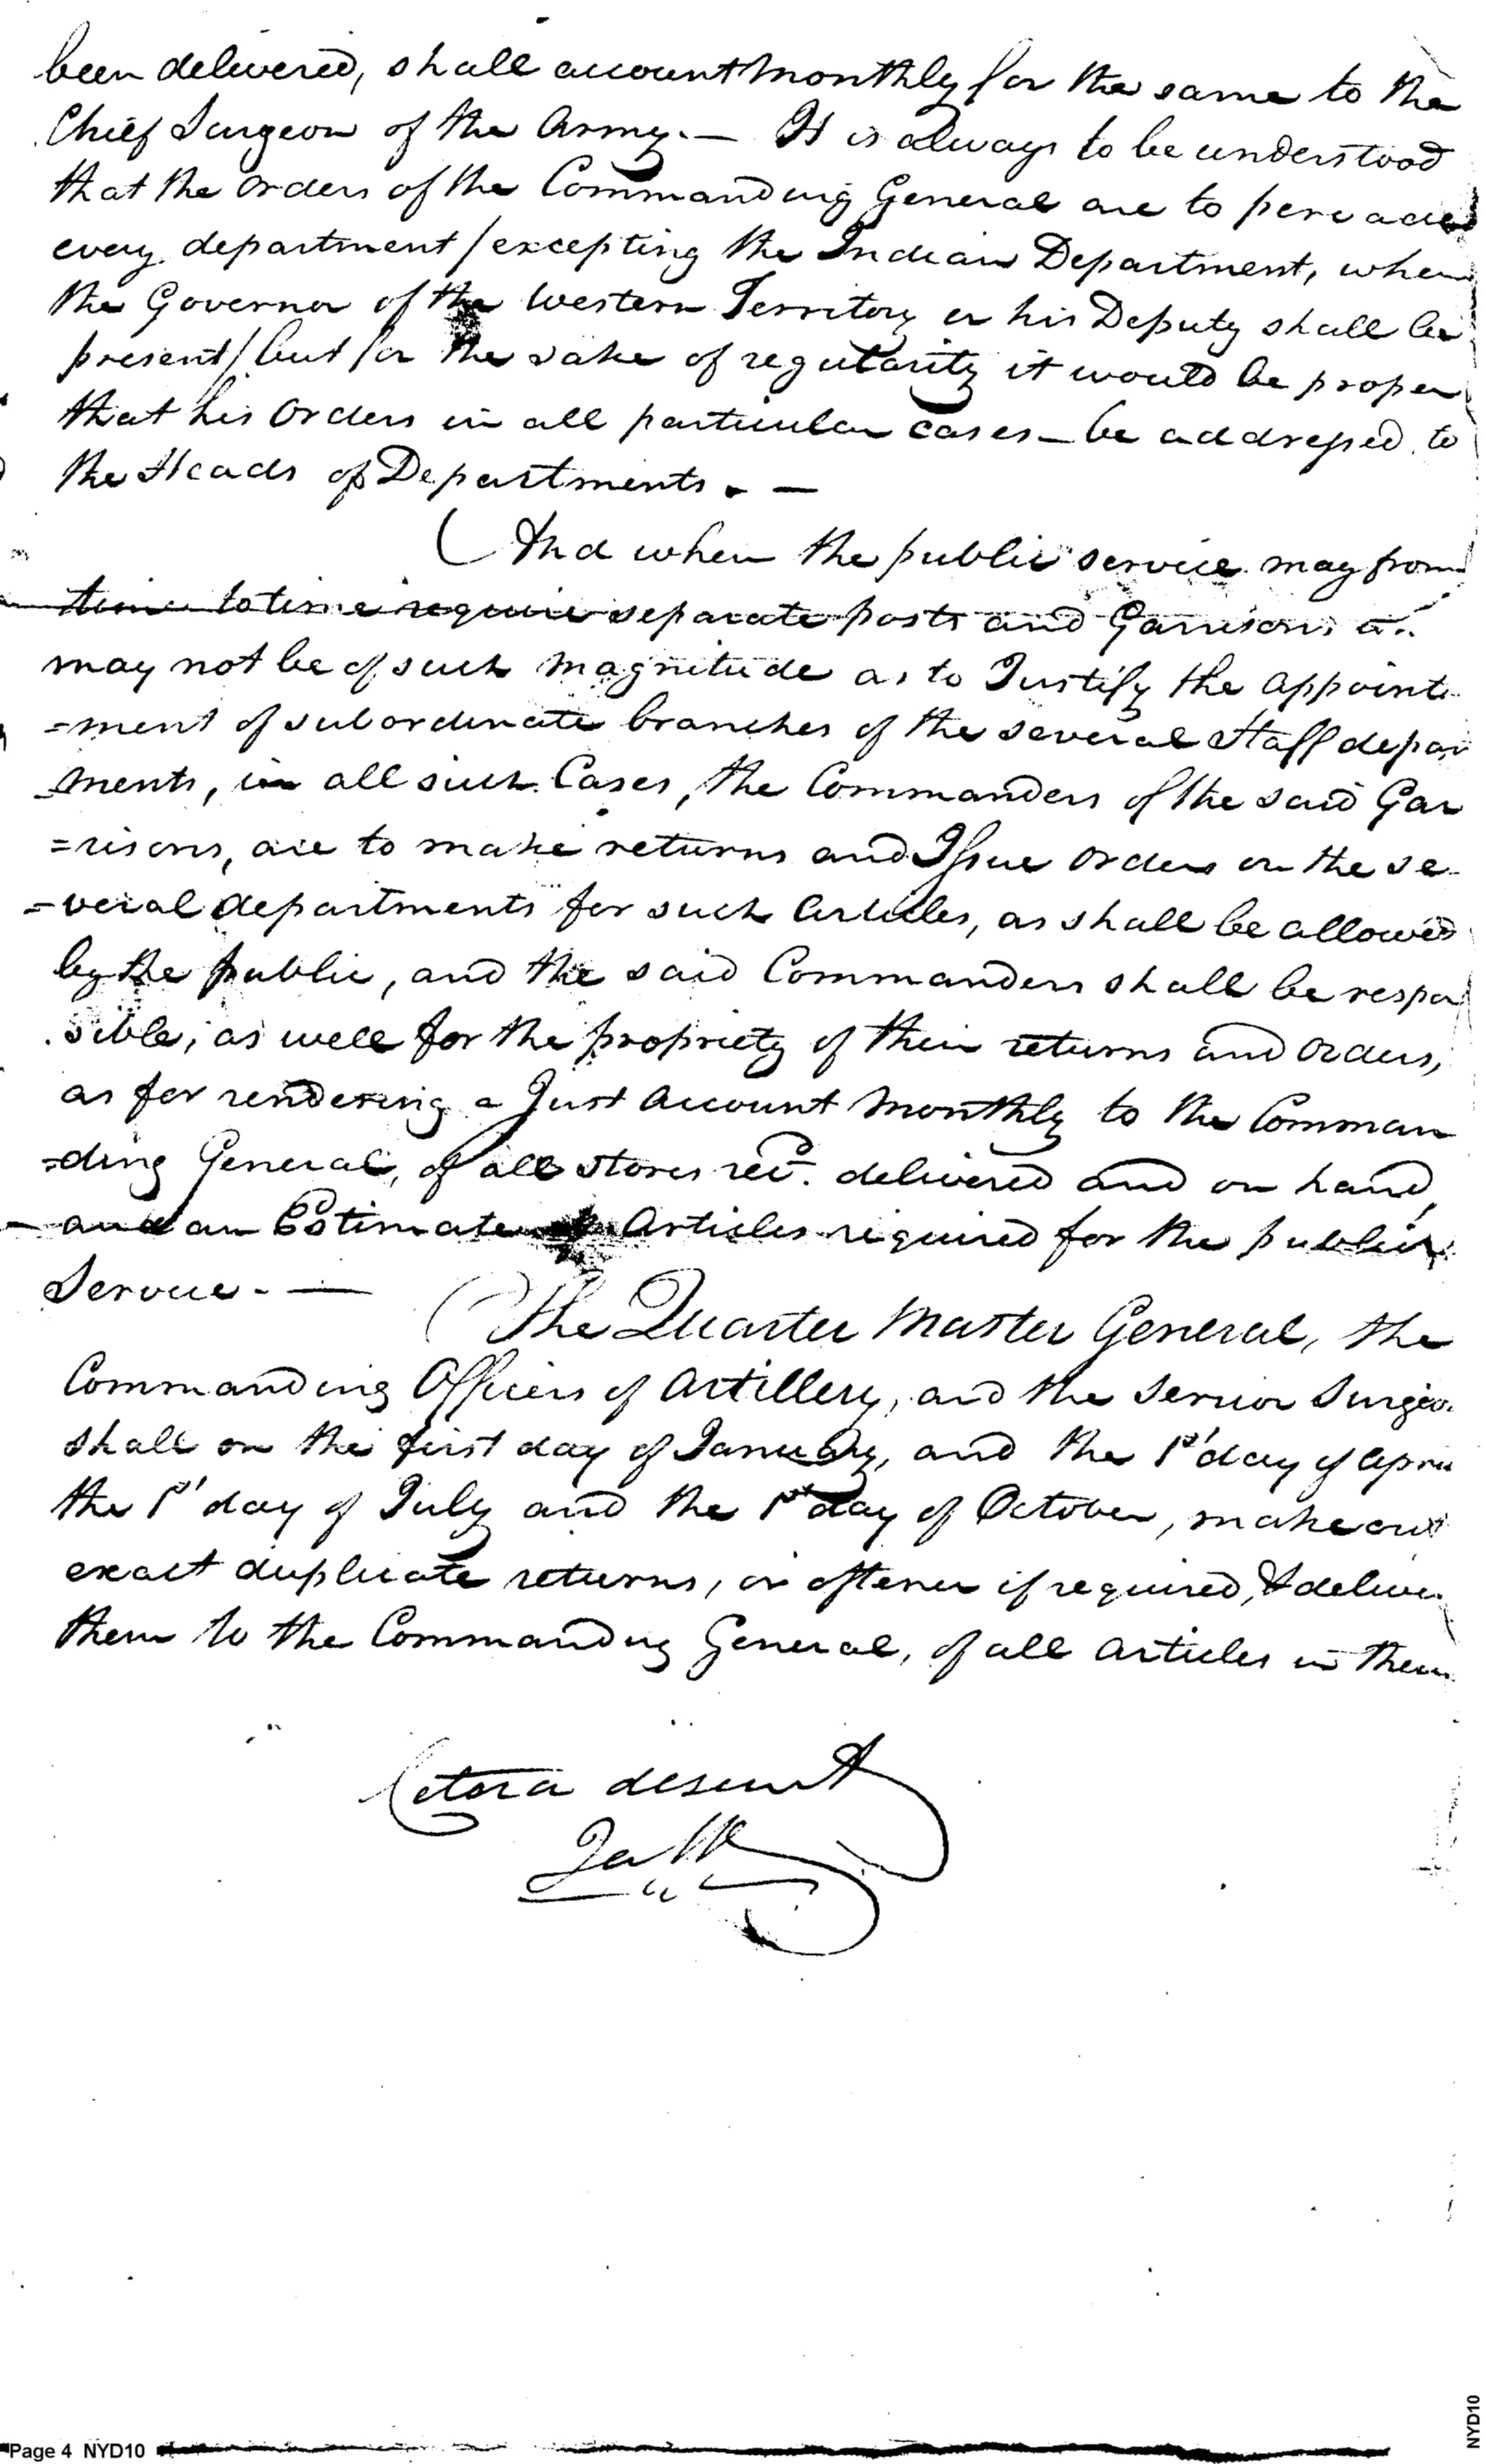 been delivered, shall account monthly for the same to the
Chief Surgeon of the Army.— It is always to be understood
that the orders of the Commanding General are to pervade
every department /excepting the Indian Department, when
the Governor of the Western Territory or his Deputy shall be
present/ but for the sake of regularity it would be proper
that his Orders in all particular cases – be addressed to
the Heads of Departments. —
And when the public service may from
time to time require separate posts and Garrisons as
may not be of such magnitude as to Justify the appoint
=ment of subordinate branches of the several Staff depart
ments, in all such Cases, the Commanders of the said Gar
=risons, are to make returns and Issue orders on the se-
=veral departments for such Articles, as shall be allowed
by the public, and the said Commanders shall be respon
sible, as well for the propriety of their returns and orders,
as for rendering a Just account monthly to the Comman
=ding General, of all stores recd. delivered and on hand,
and an Estimate Articles required for the public
Service. —
The Quarter Master General, the
Commanding Officers of Artillery, and the Senior Surgeon
shall on the first day of January, and the 1st day of April
the 1st day of July and the 1st day of October, make out
exact duplicate returns, or oftener if required, & deliver
them to the Commanding General, of all articles in their
Cetera desunt
Ja W
Page 4 NYD10
NYD10